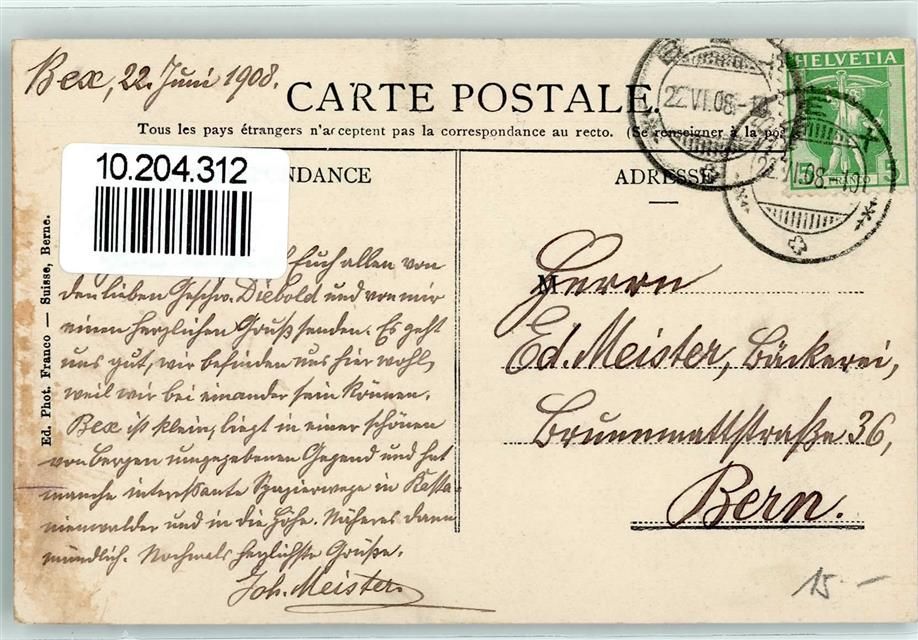 Bex, 22. Juni 1908.
CARTE POSTALE.
Tous les pays étrangers n'acceptent pas la correspondance au recto. (Se renseigner à la pos
HELVETIA
BEX
22.VI.08.
BEX
22.VI.08.
5
10.204.312
NDANCE
ADRESSE
Ed. Phot. Franco — Suisse, Berne.
Euch allen von
den lieben Geschw. Diebold und von mir
einen herzlichen Gruß senden. Es geht
uns gut, wir befinden uns hier wohl,
weil wir bei einander sein können.
Bex ist klein, liegt in einer schönen
von Bergen umgegebenen Gegend und hat
manche interessante Spazierwege in Kasta-
nienwälder und in die Höhe. Näheres dann
mündlich. Nochmals herzlichste Grüße.
Joh. Meister.
M Herrn
Ed. Meister, Bäckerei,
Brunnmattstraße 36,
Bern.
15.-